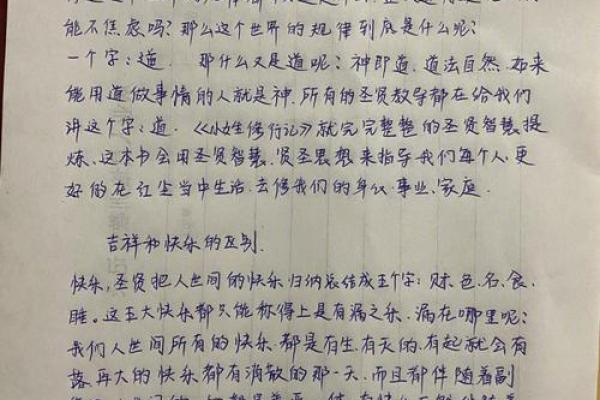 能不焦虑吗?那么这个世界的规律到底是什么呢?
一个字:道. 那什么又是道呢?神即道,道法自然,如来
能用道做事情的人就是神.所有的圣贤教导都在给我们
讲这个字:道.《女生修行记》就完完整整的圣贤智慧提
炼、这本书会用圣贤智慧、贤圣思想来指导我们每个人、更
好的在红尘当中生活.去修我们的身心、事业、家庭.
吉祥和快乐的区别.
快乐,圣贤把人世间的快乐归纳总结成五个字:财、色、名、食、
睡。这五大快乐都只能称得上是有漏之乐、漏在哪里呢?
我们人世间所有的快乐都是有生、有灭的,有起就会有
落、再大的快乐都有消散的那一天、而且都伴随着副